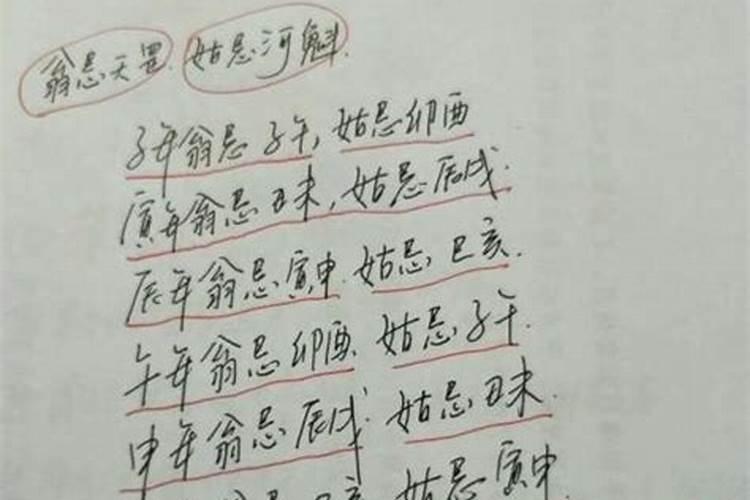 翁忌天罡.姑忌河魁.
子年翁忌子午,姑忌卯酉
寅年翁忌丑未,姑忌辰戌.
辰年翁忌寅申.姑忌巳亥.
午年翁忌卯酉 姑忌子午.
申年翁忌辰戌.姑忌丑未.
忌巳亥 姑忌寅申